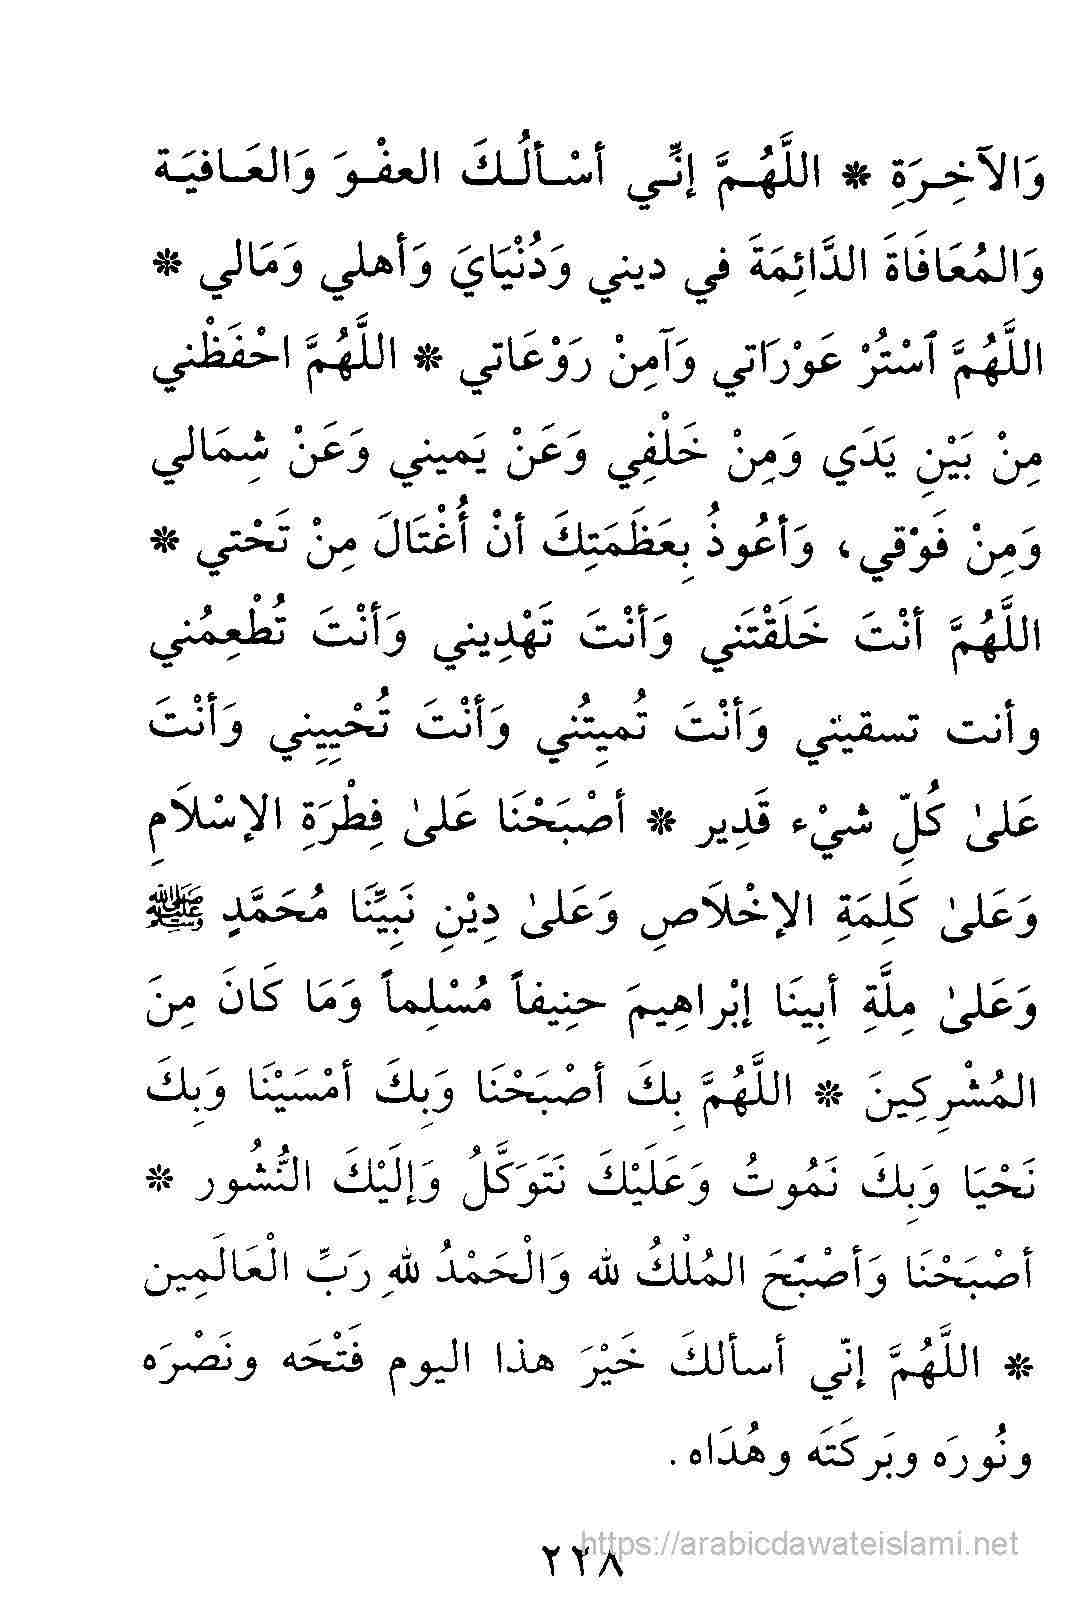 وَالآخِرَةِ * اللَّهُمَّ إنِّي أسْألُكَ العفْوَ وَالعَافيَة
وَالمُعَافَاةَ الدَّائِمَةَ في ديني وَدُنْيَايَ وَأهلي وَمَالي *
اللَّهُمَّ ٱسْتُرْ عَوْرَاتي وَآمِنْ رَوْعَاتي * اللَّهُمَّ احْفَظْني
مِنْ بَيْنِ يَدَي وَمِنْ خَلْفِي وَعَنْ يَميني وَعَنْ شِمَالي
وَمِنْ فَوْقي، وَأعُوذُ بِعَظَمَتِكَ أنْ أُغْتَالَ مِنْ تَحْتي *
اللَّهُمَّ أنْتَ خَلَقْتَني وَأنْتَ تَهْدِيني وَأنْتَ تُطْعِمُني
وأنت تسقيني وَأنْتَ تُميِتُني وَأنْتَ تُحْيِيِني وَأنْتَ
عَلىٰ كُلِّ شيْء قَدِير * أصْبَحْنَا عَلىٰ فِطْرَةِ الإسْلَامِ
وَعَلىٰ كَلِمَةِ الإخْلَاصِ وَعَلىٰ دِيْنِ نَبِيِّنَا مُحَمَّدٍ ﷺ
وَعَلىٰ مِلَّةِ أبِينَا إبْراهِيمَ حنِيفاً مُسْلِماً وَمَا كَانَ مِنَ
المُشْرِكِينَ * اللَّهُمَّ بِكَ أصْبَحْنَا وَبِكَ أمْسَيْنَا وَبِكَ
نَحْيَا وَبِكَ نَمُوتُ وَعَلَيْكَ نَتَوَكَّلُ وَإلَيْكَ النُّشُور *
أصْبَحْنَا وَأصْبَحَ المُلْكُ لله وَالْحَمْدُ للهِ رَبِّ الْعَالَمِين
* اللَّهُمَّ إنّي أسألكَ خَيْرَ هذا اليوم فَتْحَه ونَصْرَه
ونُورَه وبَركَتَه وهُدَاه.
https://arabicdawateislami.net
٢٢٨